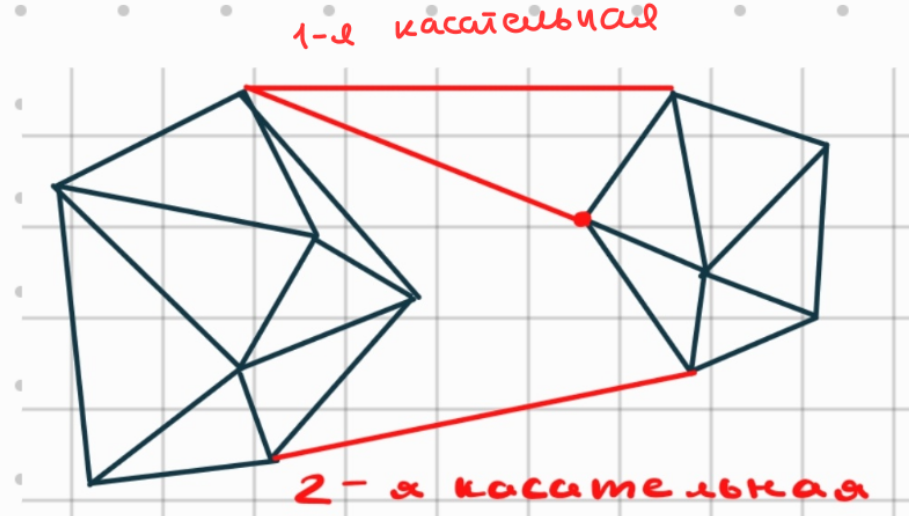 1-я касательная
2-я касательная